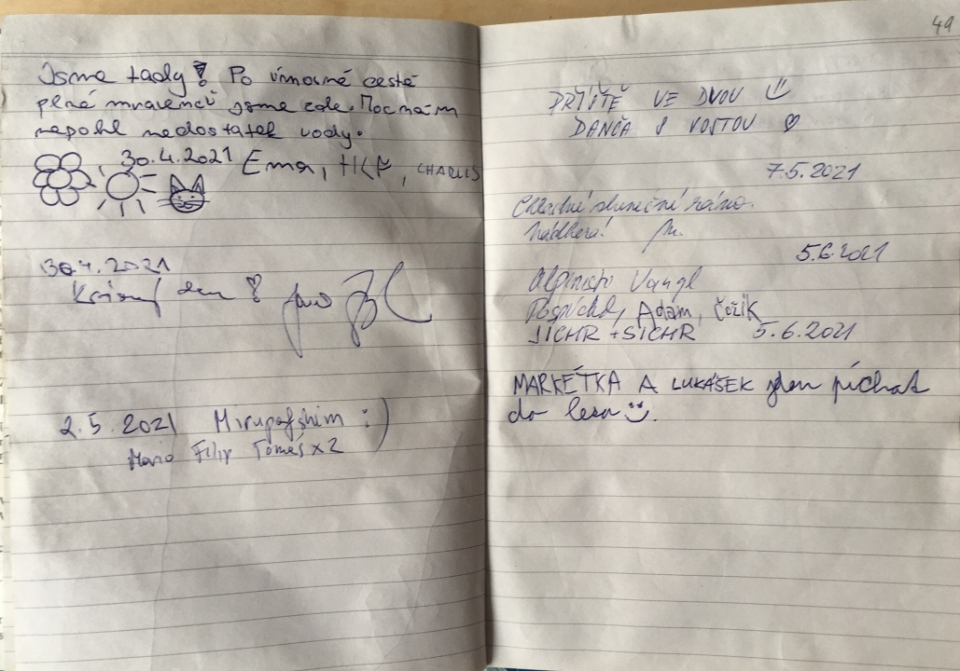 Jsme tady! Po únavné cestě
plné mravenců jsme cole. Moc nám
nepohl nedostatek vody.
30.4.2021 Ema, CHARLES
30.4.2021
Krásný den!
2.5.2021 Mirupafshim :)
Mario Filip Tomáš x2
49
PŘÍŠTĚ VE DVOU
DANČA S VOJTOU
7.5.2021
Chladné sluneční ráno.
Nádhera! M.
5.6.2021
Alpinisti Vangl
Pospíchal, Adam, Čožik
SICHR + SICHR 5.6.2021
MARKÉTKA A LUKÁŠEK jdou píchat
do lesa